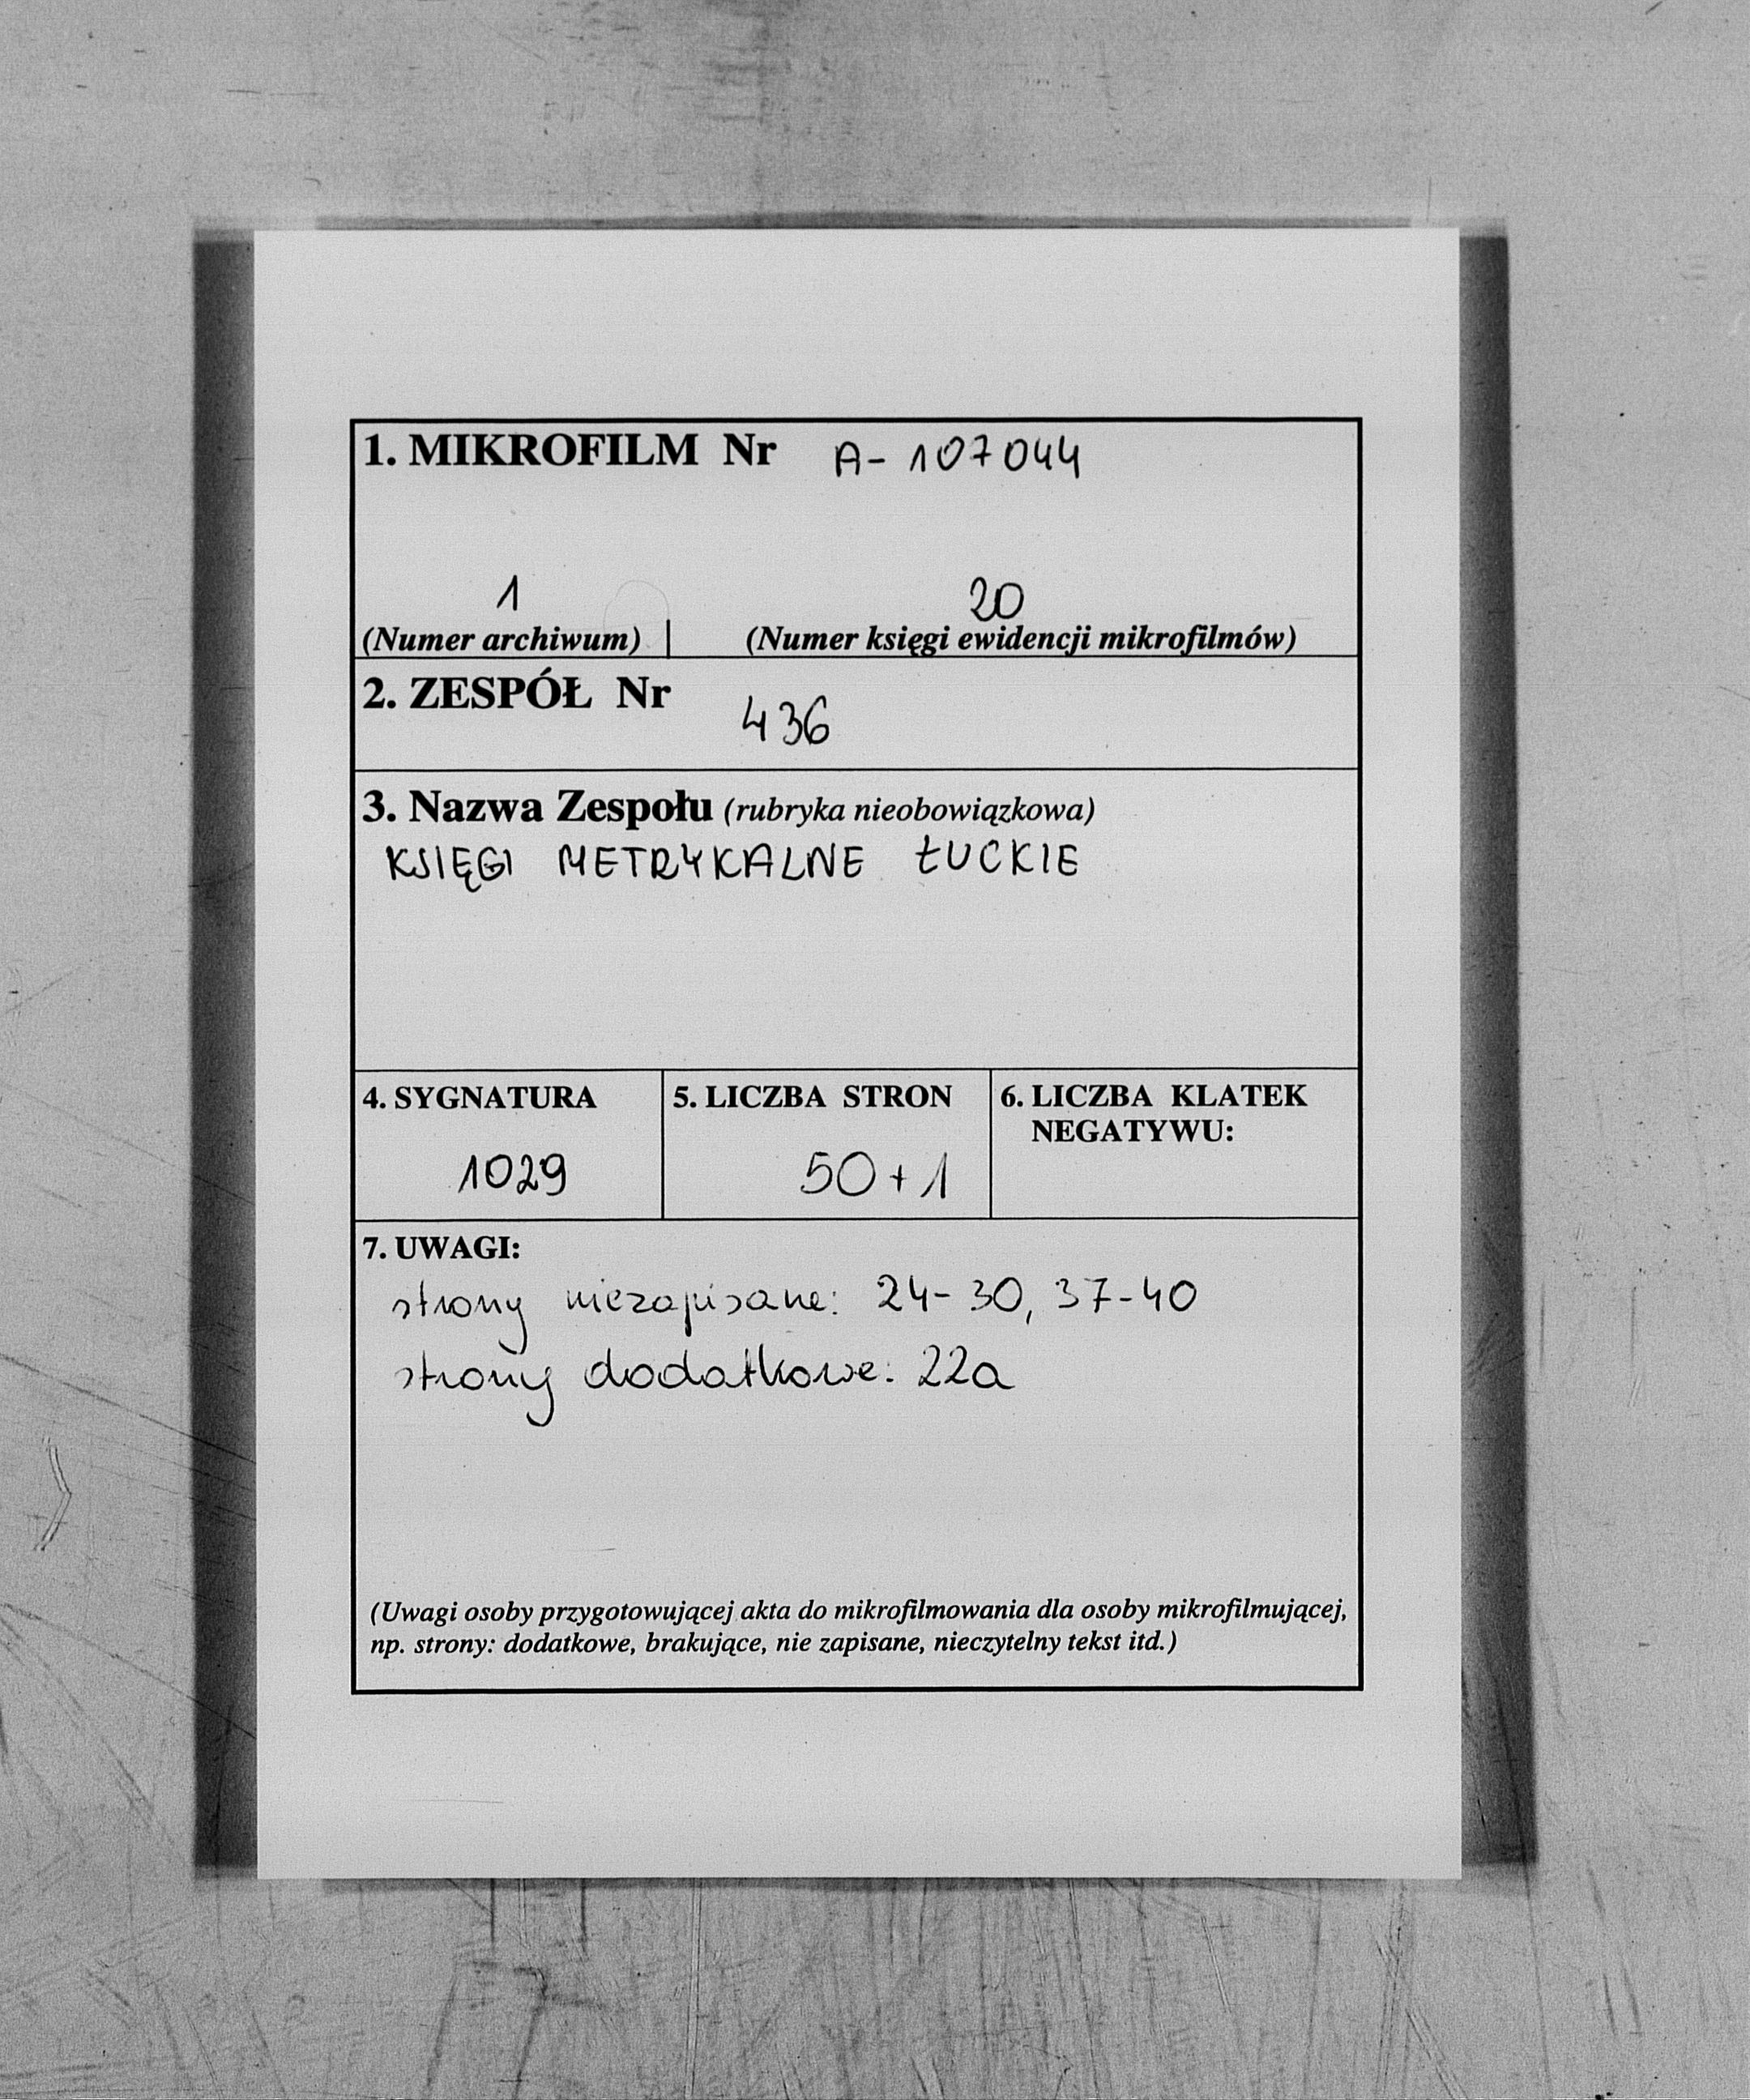 1. MIKROFILM Nr A-107044
1 20
(Numer archiwum) | (Numer księgi ewidencji mikrofilmów)
2. ZESPÓŁ Nr 436
3. Nazwa Zespołu (rubryka nieobowiązkowa)
KSIĘGI METRYKALNE ŁUCKIE
4. SYGNATURA 5. LICZBA STRON 6. LICZBA KLATEK
NEGATYWU:
1029 50+1
7. UWAGI:
strony niezapisane: 24-30, 37-40
strony dodatkowe: 22a
(Uwagi osoby przygotowującej akta do mikrofilmowania dla osoby mikrofilmującej,
np. strony: dodatkowe, brakujące, nie zapisane, nieczytelny tekst itd.)